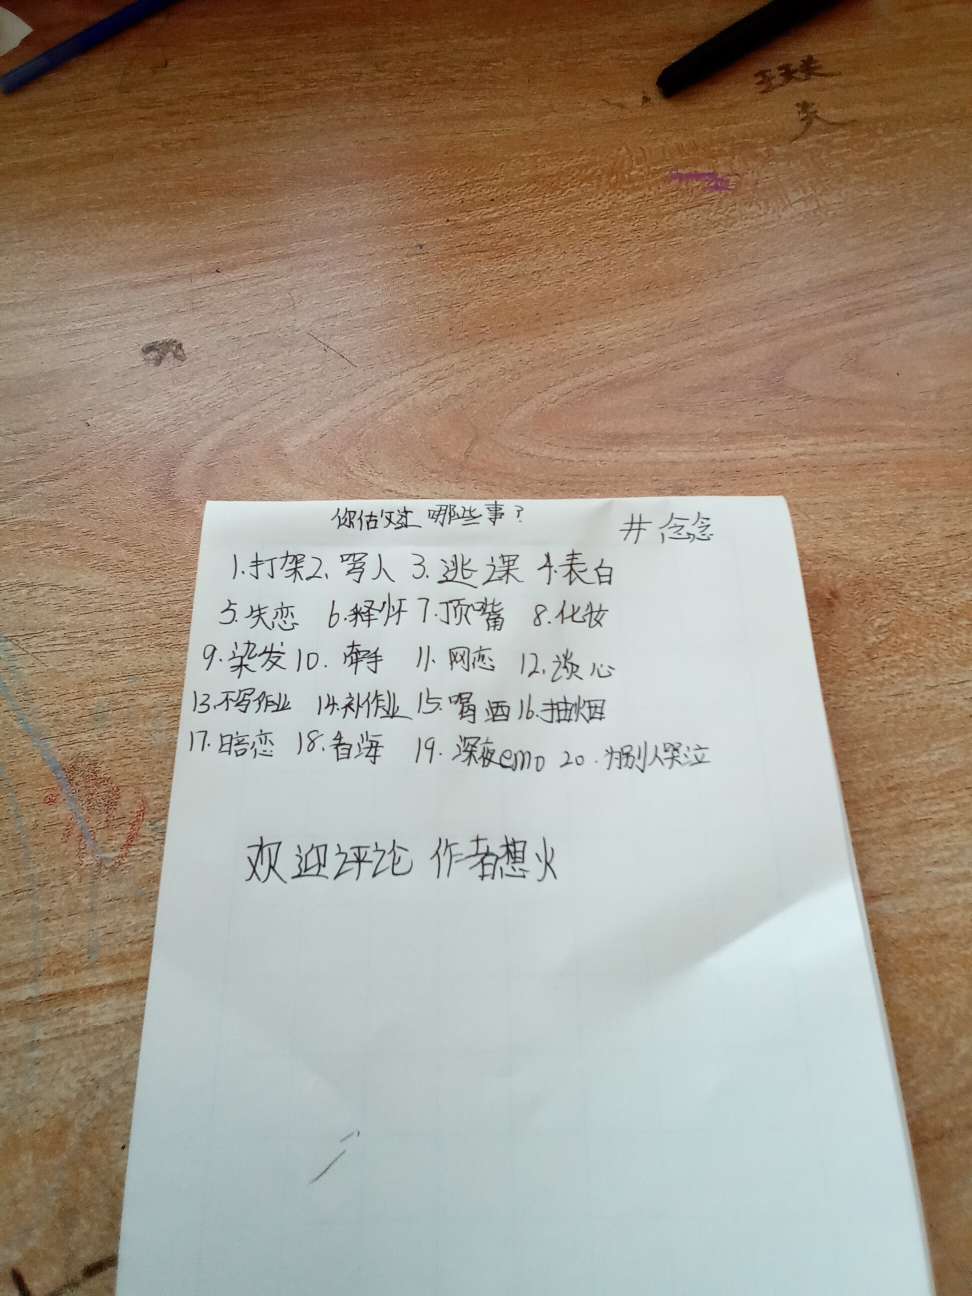 你估过 哪些事？
#念念
1.打架 2、骂人 3.逃课 4.表白
5.失恋 6.释怀 7.顶嘴 8.化妆
9.染发 10. 牵手 11. 网恋 12.谈心
13.不写作业 14.补作业 15.喝酒 16.抽烟
17.暗恋 18.看海 19.深夜emo 20.为别人哭泣
欢迎评论 作者想火